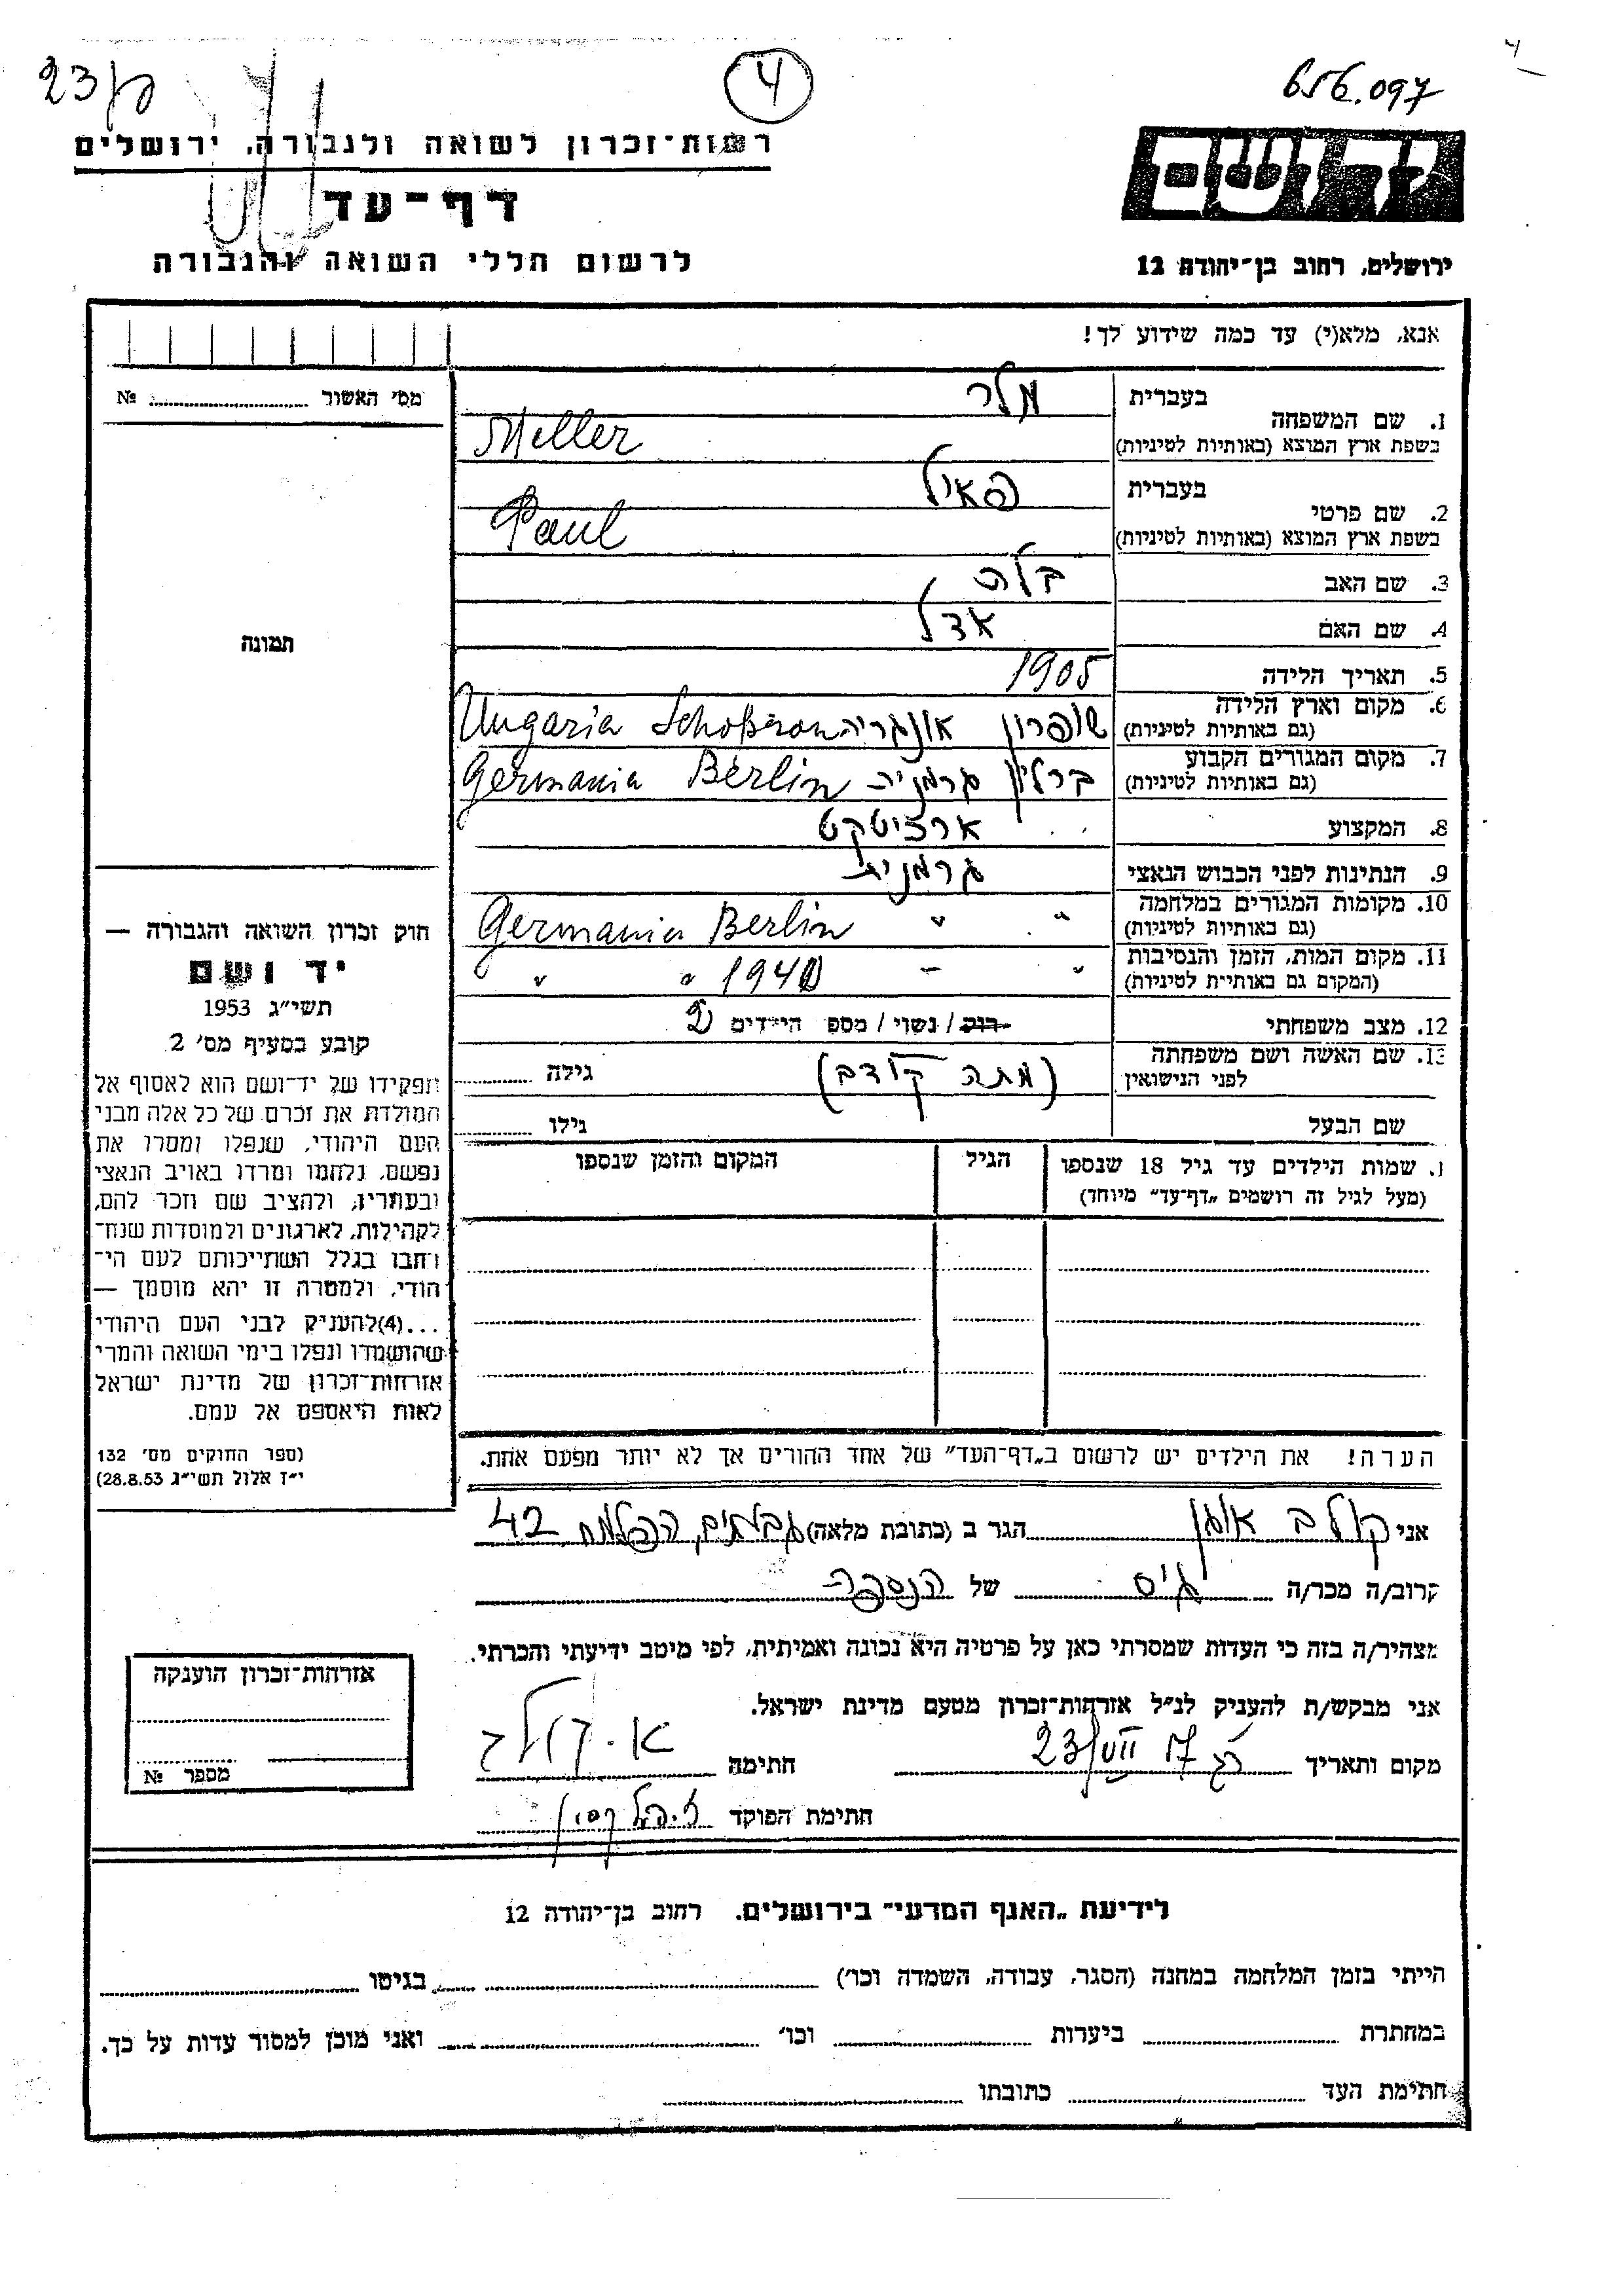 23
4
656.097
רשות־זכרון לשואה ולגבורה, ירושלים
דף־עד
לרשום חללי השואה והגבורה
יד ושם
ירושלים, רחוב בן־יהודה 12
אנא, מלא(י) עד כמה שידוע לך!
מס׳ האשור № 
תמונה
1. שם המשפחה
בעברית
מלר
בשפת ארץ המוצא (באותיות לטיניות)
Meller
2. שם פרטי
בעברית
פאול
בשפת ארץ המוצא (באותיות לטיניות)
Paul
3. שם האב
בלה
4. שם האם
אדל
5. תאריך הלידה
1905
6. מקום וארץ הלידה
(גם באותיות לטיניות)
שופרון אונגריה Schopron Ungaria
7. מקום המגורים הקבוע
(גם באותיות לטיניות)
ברלין גרמניה Berlin Germania
8. המקצוע
ארכיטקט
9. הנתינות לפני הכבוש הנאצי
גרמנית
10. מקומות המגורים במלחמה
(גם באותיות לטיניות)
" " Germania Berlin
11. מקום המות, הזמן והנסיבות
(המקום גם באותיות לטיניות)
" – 1940 " "
12. מצב משפחתי
רוק / נשוי / מספ הילדים 2
13. שם האשה ושם משפחתה
לפני הנישואין
גילה
שם הבעל
גילו
שמות הילדים עד גיל 18 שנספו
(מעל לגיל זה רושמים „דף־עד" מיוחד)
הגיל
המקום והזמן שנספו
הערה! את הילדים יש לרשום ב„דף־העד" של אחד ההורים אך לא יותר מפעם אחת.
חוק זכרון השואה והגבורה —
יד ושם
תשי״ג 1953
קובע בסעיף מס׳ 2
תפקידו של יד־ושם הוא לאסוף אל
המולדת את זכרם של כל אלה מבני
העם היהודי, שנפלו ומסרו את
נפשם, נלחמו ומרדו באויב הנאצי
ובעוזריו, ולהציב שם וזכר להם,
לקהילות, לארגונים ולמוסדות שנח־
רחבו בגלל השתייכותם לעם הי־
הודי, ולמטרה זו יהא מוסמך —
...(4)להעניק לבני העם היהודי
שהושמדו ונפלו בימי השואה והמרי
אזרחות־זכרון של מדינת ישראל
לאות היאספם אל עמם.
(ספר החוקים מס׳ 132
י״ז אלול תשי״ג 28.8.53)
אני קולב הגר ב (כתובת מלאה) גבעתיים, הפלמח 42
קרוב/ה מכר/ה גיס של הנספה
מצהיר/ה בזה כי העדות שמסרתי כאן על פרטיה היא נכונה ואמיתית, לפי מיטב ידיעתי והכרתי.
אני מבקש/ת להעניק לנ״ל אזרחות־זכרון מטעם מדינת ישראל.
מקום ותאריך 23/VII חתימה א. קולב
חתימת הפוקד
אזרחות־זכרון הוענקה
מספר №
לידיעת „האגף המדעי" בירושלים. רחוב בן־יהודה 12
הייתי בזמן המלחמה במחנה (הסגר, עבודה, השמדה וכו׳) בגיטו
במחתרת ביערות וכו׳ ואני מוכן למסור עדות על כך.
חתימת העד כתובתו